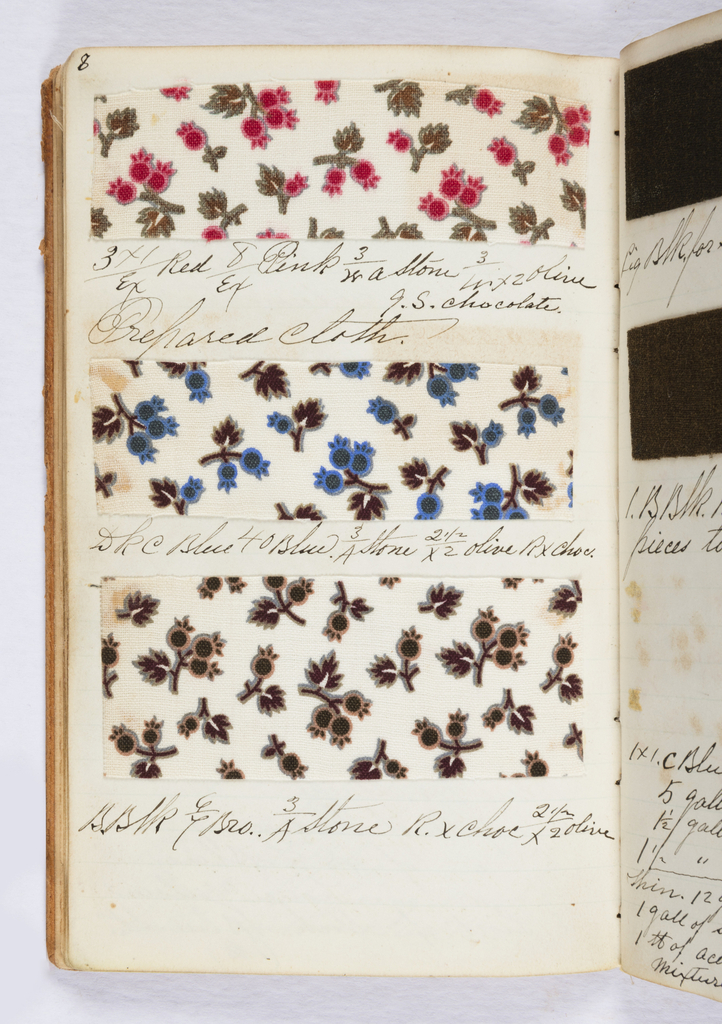 8
3 x1/Ex Red 8/Ex Pink 3/W a Stone 3/W x2 Olive
J. S. chocolate.
Prepared cloth.
Dk C Blue 40 Blue. 3/A Stone 2 1/2/X2 olive R x choc.
B. Blk 6/7 Bro.. 3/A Stone R. x choc 2 1/2/X2 olive
Blk, for
1. B Blk.
pieces to
1x1. C Blu
5 gall
1 1/2 gall
1 1/2 "
Thin. 12
1 gall of
1 lb of ace
mixture